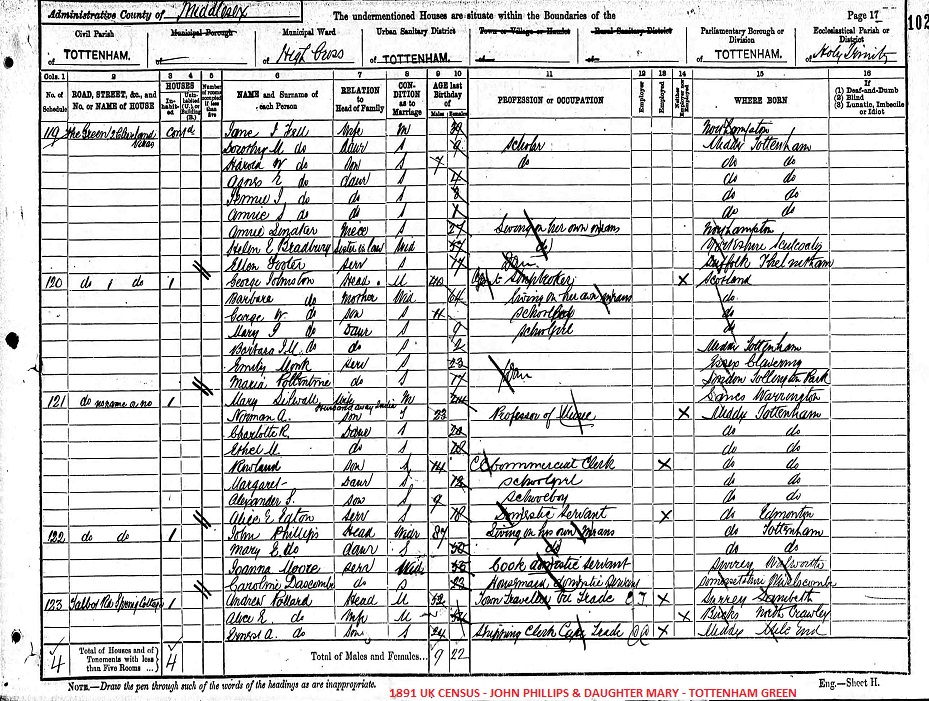 Administrative County of Middlesex
The undermentioned Houses are situate within the Boundaries of the
Page 17
102
Civil Parish
of TOTTENHAM.
Municipal Borough
of
Municipal Ward
of High Cross
Urban Sanitary District
of TOTTENHAM.
Town or Village or Hamlet
of
Rural Sanitary District
of
Parliamentary Borough or Division
of TOTTENHAM.
Ecclesiastical Parish or District
of Holy Trinity
Cols. 1 2 3 4 5 6 7 8 9 10 11 12 13 14 15 16
No. of Schedule
ROAD, STREET, &c., and No. or NAME of HOUSE
HOUSES
Inhabited
Uninhabited (U.) or Building (B.)
Number of rooms occupied if less than five
NAME and Surname of each Person
RELATION to Head of Family
CONDITION as to Marriage
AGE last Birthday of
Males Females
PROFESSION or OCCUPATION
Employer
Employed
Neither Employer nor Employed
WHERE BORN
If
(1) Deaf-and-Dumb
(2) Blind
(3) Lunatic, Imbecile or Idiot
119 The Green Villas Contd Jane I Fell Wife M 39 Northampton
Dorothy M do Daur S 9 Scholar Middx Tottenham
Harold W do Son S 7 do do do
Agnes E do daur S 4 do do
Jennie I do do S do do
Annie S do do S 1 do do
Annie Niece S 27 Living on her own means Northampton
Helen E Bradbury Sister in law Wid 57 do Yorkshire
Ellen Serv S 17 Dom. Suffolk Thelnetham
120 do do 1 George Johnston Head M 40 Shipbroker X Scotland
Barbara do Mother Wid 64 Living on her own means do
George W do Son S 11 Schoolboy do
Mary I do Daur S 9 Schoolgirl do
Barbara I.M. do do S 2 Middx Tottenham
Emily Monk Serv S 23 Dom Essex Clavering
Maria do S 17 London Tollington Park
121 do no name or no 1 Mary Wife M Lancs Warrington
Husband away
Norman A. Son S 23 Professor of Music X Middx Tottenham
Charlotte R. Daur S 20 do do
Ethel M. do S do do
Rowland Son S 14 Commercial Clerk X do do
Margaret Daur S 12 Schoolgirl do do
Alexander S. Son S 9 Schoolboy do do
Alice E Eaton Serv S 18 Domestic Servant X do Edmonton
122 do do 1 John Phillips Head Widr 87 Living on his own means do Tottenham
Mary E do daur S 50 do do do
Joanna Moore Serv Wid 55 Cook domestic servant Surrey Walworth
Caroline Dascombe do S 22 Housemaid domestic servant Somersetshire Wiveliscombe
123 Talbot Rd Spring Cottage 1 Andrew Head M 52 Town Traveller Trade X Surrey Lambeth
Alice R do Wife M X Bucks North Crawley
Ernest A. do Son S 24 Shipping Clerk Trade X Middx Mile End
4
Total of Houses and of Tenements with less than Five Rooms ...
4
Total of Males and Females...
9 22
NOTE.—Draw the pen through such of the words of the headings as are inappropriate.
Eng.—Sheet H.
1891 UK CENSUS - JOHN PHILLIPS & DAUGHTER MARY - TOTTENHAM GREEN